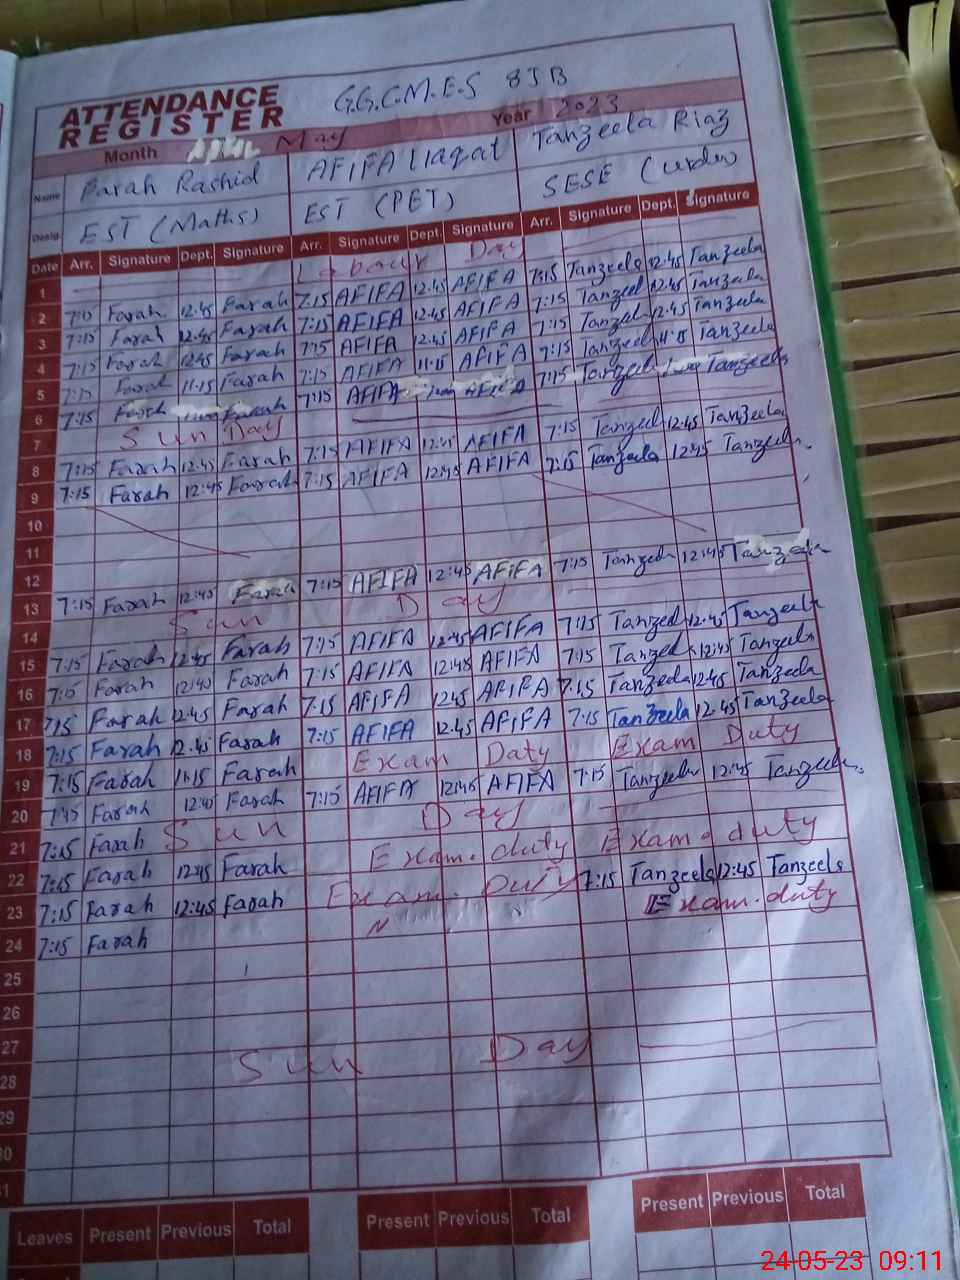 ATTENDANCE REGISTER G.G.C.M.E.S 8JB
Month May Year 2023
Name Farah Rashid AFIFA liaqat Tanzeela Riaz
Desig. EST (Maths) EST (PET) SESE (urdu)
Date Arr. Signature Dept. Signature Arr. Signature Dept. Signature Arr. Signature Dept. Signature
1 Labour Day
2 7:15 Farah 12:45 Farah 7:15 AFIFA 12:45 AFIFA 7:15 Tanzeela 12:45 Tanzeela
3 7:15 Farah 12:45 Farah 7:15 AFIFA 12:45 AFIFA 7:15 Tanzeel 12:45 Tanzeela
4 7:15 Farah 12:45 Farah 7:15 AFIFA 12:45 AFIFA 7:15 Tanzeel 12:45 Tanzeela
5 7:15 Farah 11:15 Farah 7:15 AFIFA 11:15 AFIFA 7:15 Tanzeela 11:15 Tanzeela
6 7:15 Farah Farah 7:15 AFIFA AFIFA 7:15 Tanzeela Tanzeela
7 Sun Day
8 7:15 Farah 12:45 Farah 7:15 AFIFA 12:45 AFIFA 7:15 Tanzeela 12:45 Tanzeela
9 7:15 Farah 12:45 Farah 7:15 AFIFA 12:45 AFIFA 7:15 Tanzeela 12:45 Tanzeela
10
11
12
13 7:15 Farah 12:45 Farah 7:15 AFIFA 12:45 AFIFA 7:15 Tanzeela 12:45 Tanzeela
14 Sun Day
15 7:15 Farah 12:45 Farah 7:15 AFIFA 12:45 AFIFA 7:15 Tanzeel 12:45 Tanzeela
16 7:15 Farah 12:45 Farah 7:15 AFIFA 12:45 AFIFA 7:15 Tanzeel 12:45 Tanzeela
17 7:15 Farah 12:45 Farah 7:15 AFIFA 12:45 AFIFA 7:15 Tanzeela 12:45 Tanzeela
18 7:15 Farah 12:45 Farah 7:15 AFIFA 12:45 AFIFA 7:15 Tanzeela 12:45 Tanzeela
19 7:15 Farah 11:15 Farah Exam Duty Exam Duty
20 7:15 Farah 12:45 Farah 7:15 AFIFA 12:45 AFIFA 7:15 Tanzeela 12:45 Tanzeela
21 7:15 Farah Sun Day
22 7:15 Farah 12:45 Farah Exam. duty Exam. duty
23 7:15 Farah 12:45 Farah Exam. Duty 7:15 Tanzeela 12:45 Tanzeela
24 7:15 Farah Exam. duty
25
26
27
28 Sun Day
29
30
31
Leaves Present Previous Total Present Previous Total Present Previous Total
24-05-23 09:11